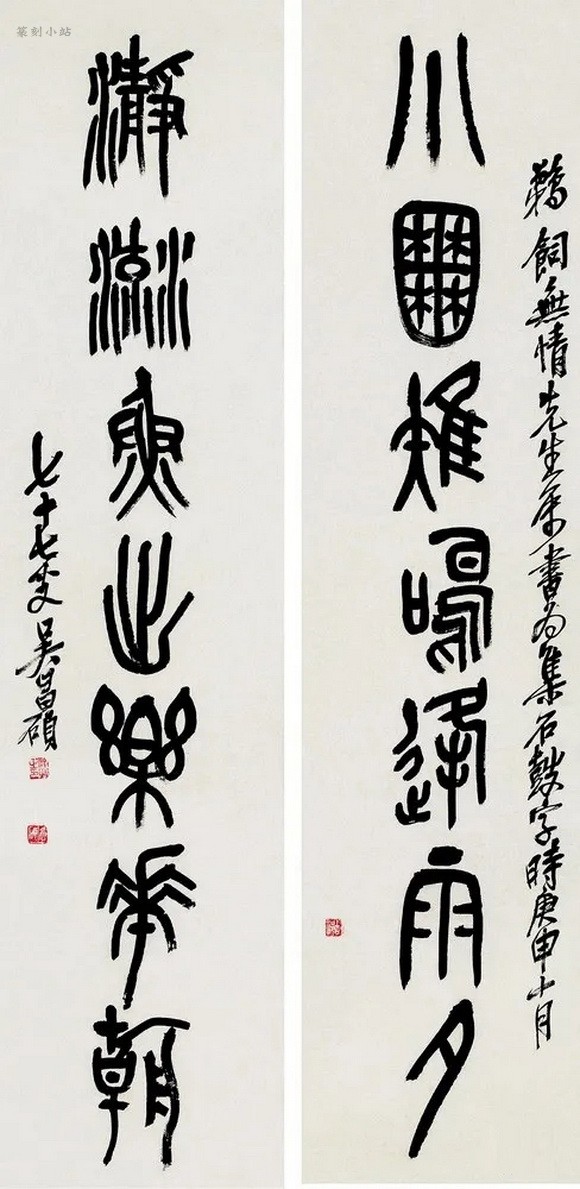 篆刻小站
鵜飼無情先生屬書為集石鼓字時庚申十月
小囿雉鳴逢雨夕
瀞流魚出樂華朝
七十七叟吳昌碩